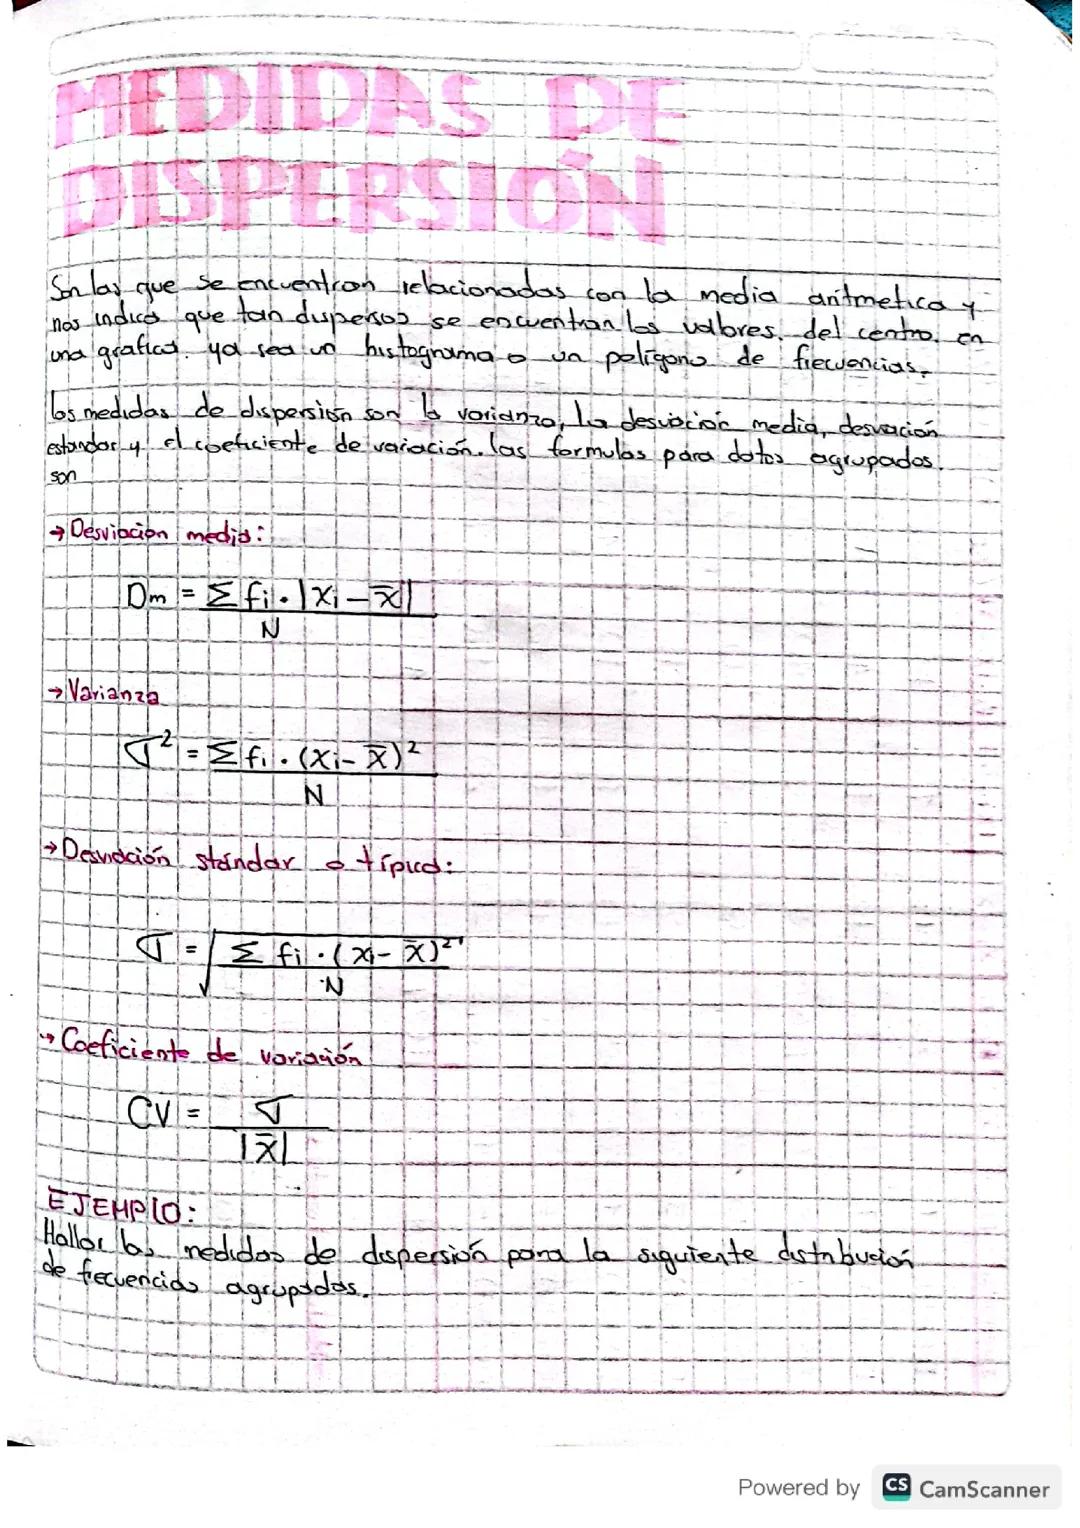 MEDIDAS DE
DISPERSIÓN
Son las que se encuentran relacionadas con la media aritmetica y
nos indica que tan dispersos se encuentran los valores del centro en
una grafica. ya sea un histograma o un polígono de frecuencias.
las medidas de dispersión son la varianza, la desviación media, desviación
estandar y el coeficiente de variación. las formulas para datos agrupados.
son
→ Desviacion media:
Dm = Σ fi · |xi − x̄|
N
→ Varianza
σ² = Σ fi · (xi − x̄)²
N
→ Desviación stándar o típica:
σ = √ Σ fi · (xi − x̄)²
N
→ Coeficiente de variación
CV = σ
|x̄|
EJEMPLO:
Hallar las medidas de dispersión para la siguiente distribución
de frecuencias agrupadas.
Powered by CS CamScanner